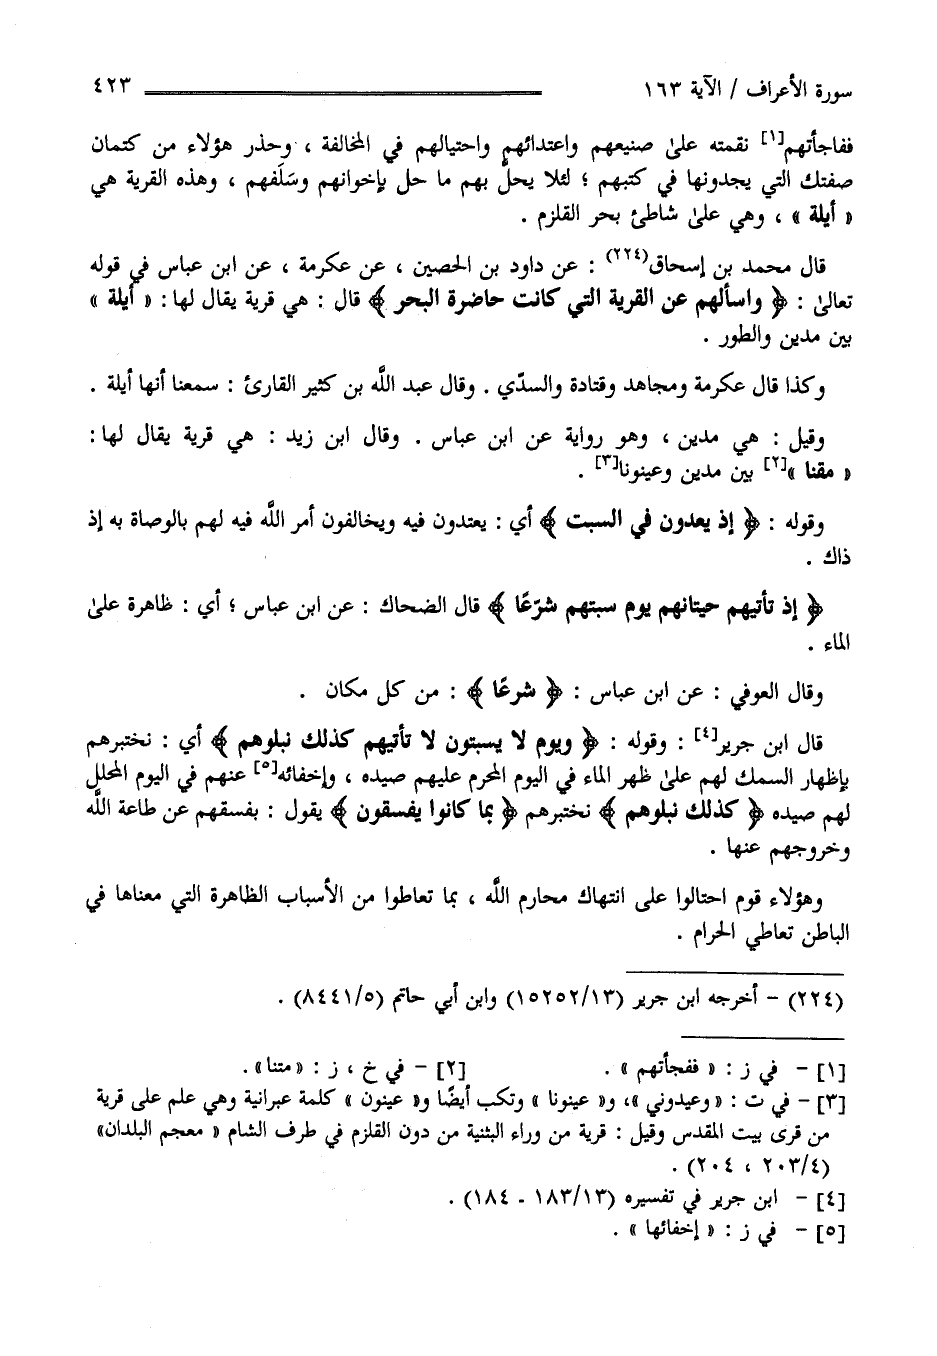 سورة الأعراف / الآية ١٦٣ ٤٢٣
ففاجأتهم[١] نقمته علىٰ صنيعهم واعتدائهم واحتيالهم في المخالفة ، وحذر هؤلاء من كتمان
صفتك التي يجدونها في كتبهم ؛ لئلا يحلَّ بهم ما حل بإخوانهم وسَلَفهم ، وهذه القرية هي
« أيلة » ، وهي علىٰ شاطئ بحر القلزم .
قال محمد بن إسحاق(٢٢٤) : عن داود بن الحصين ، عن عكرمة ، عن ابن عباس في قوله
تعالىٰ : ﴿ واسألهم عن القرية التي كانت حاضرة البحر ﴾ قال : هي قرية يقال لها : « أيلة »
بين مدين والطور .
وكذا قال عكرمة ومجاهد وقتادة والسدّي . وقال عبد اللَّه بن كثير القارئ : سمعنا أنها أيلة .
وقيل : هي مدين ، وهو رواية عن ابن عباس . وقال ابن زيد : هي قرية يقال لها :
« مقنا »[٢] بين مدين وعينونا[٣] .
وقوله : ﴿ إذ يعدون في السبت ﴾ أي : يعتدون فيه ويخالفون أمر اللَّه فيه لهم بالوصاة به إذ
ذاك .
﴿ إذ تأتيهم حيتانهم يوم سبتهم شرّعًا ﴾ قال الضحاك : عن ابن عباس ؛ أي : ظاهرة علىٰ
الماء .
وقال العوفي : عن ابن عباس : ﴿ شرعًا ﴾ : من كل مكان .
قال ابن جرير[٤] : وقوله : ﴿ ويوم لا يسبتون لا تأتيهم كذلك نبلوهم ﴾ أي : نختبرهم
بإظهار السمك لهم علىٰ ظهر الماء في اليوم المحرم عليهم صيده ، وإخفائه[٥] عنهم في اليوم المحلل
لهم صيده ﴿ كذلك نبلوهم ﴾ نختبرهم ﴿ بما كانوا يفسقون ﴾ يقول : بفسقهم عن طاعة اللَّه
وخروجهم عنها .
وهؤلاء قوم احتالوا على انتهاك محارم اللَّه ، بما تعاطوا من الأسباب الظاهرة التي معناها في
الباطن تعاطي الحرام .
(٢٢٤) - أخرجه ابن جرير (١٥٢٥٢/١٣) وابن أبي حاتم (٨٤٤١/٥) .
[١] - في ز : « ففجأتهم » . [٢] - في خ ، ز : «متنا» .
[٣] - في ت : « وعيدوني »، و« عينونا » وتكب أيضًا و« عينون » كلمة عبرانية وهي علم على قرية
من قرى بيت المقدس وقيل : قرية من وراء البثنية من دون القلزم في طرف الشام « معجم البلدان»
(٢٠٣/٤ ، ٢٠٤) .
[٤] - ابن جرير في تفسيره (١٨٣/١٣ - ١٨٤) .
[٥] - في ز : « إخفائها » .